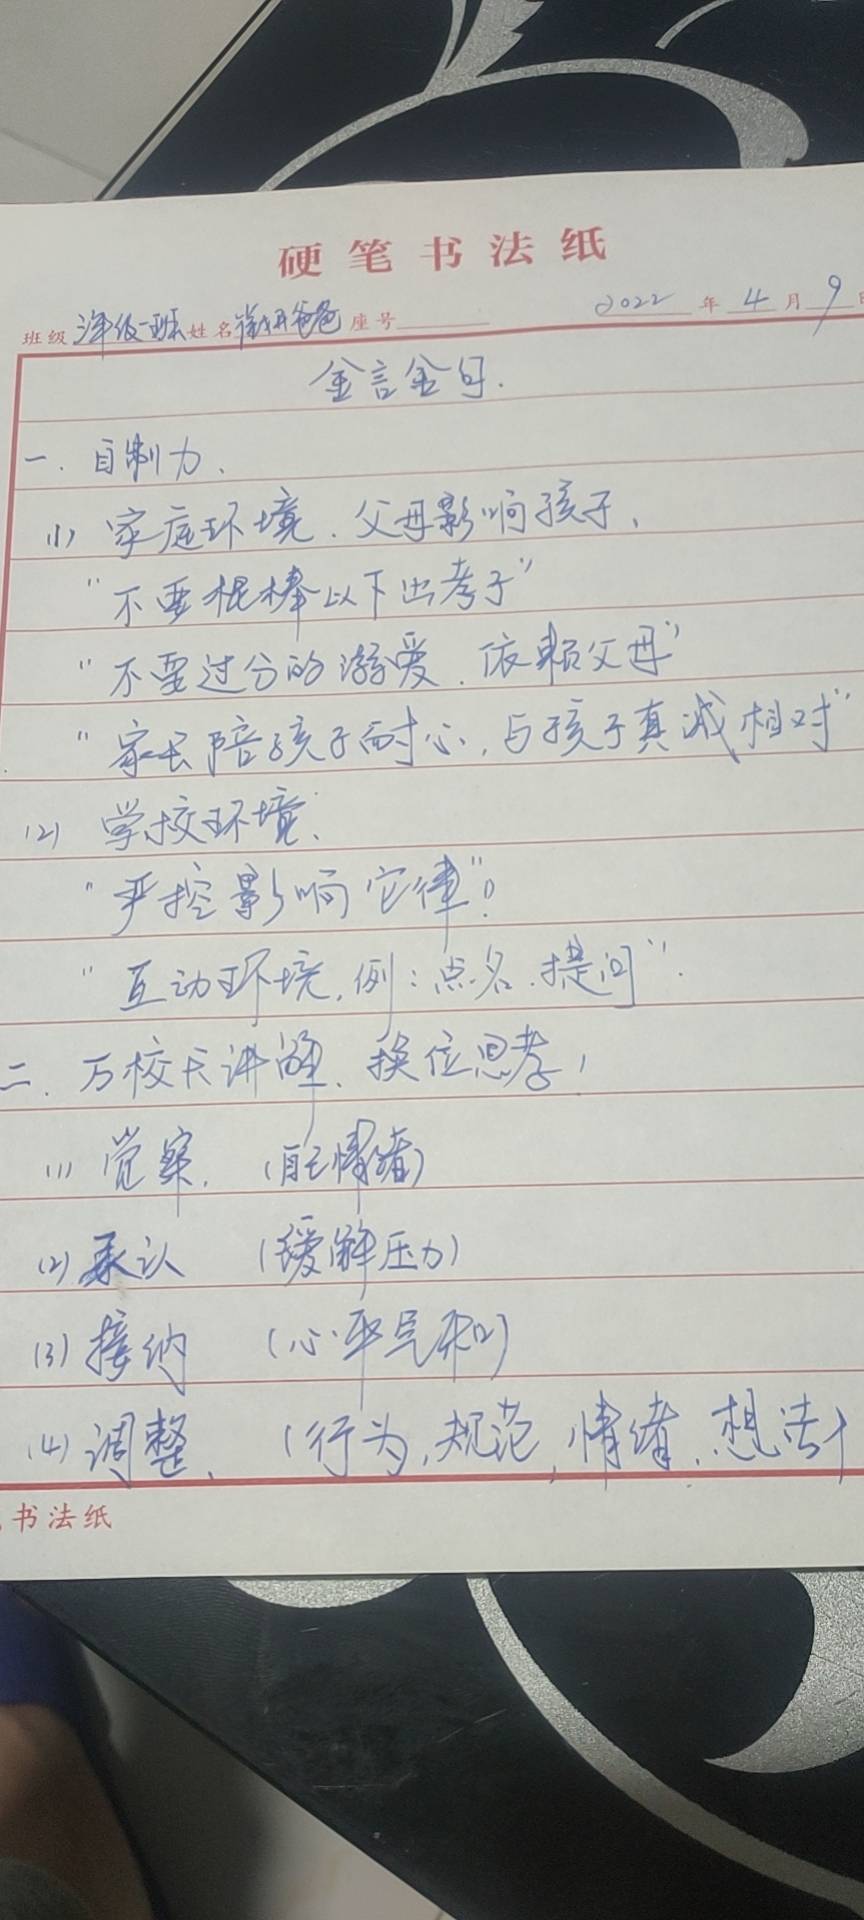 硬笔书法纸
班级 三年级一班 姓名 爸爸 座号 2022年4月9日
金言金句.
一. 自制力.
(1) 家庭环境. 父母影响孩子.
"不要棍棒以下出孝子"
"不要过分的溺爱. 依赖父母"
"家长陪孩子耐心, 与孩子真诚相对"
(2) 学校环境:
"严控影响它律"!
"互动环境, 例: 点名. 提问".
二. 万校长讲解. 换位思考,
(1) 觉察. (自己情绪)
(2) 承认 (缓解压力)
(3) 接纳 (心平气和)
(4) 调整. (行为, 规范, 情绪. 想法)
书法纸